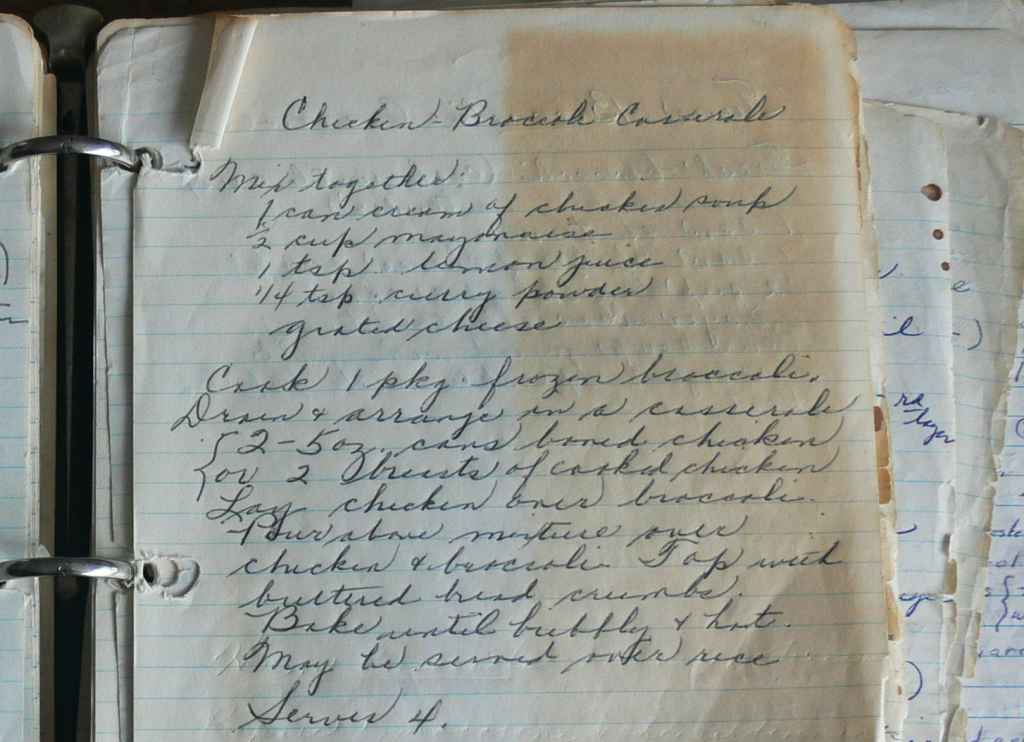 Chicken-Broccoli Casserole
Mix together:
1 can cream of chicken soup
1/2 cup mayonaise
1 tsp. lemon juice
1/4 tsp. curry powder
grated cheese
Cook 1 pkg. frozen broccoli.
Drain & arrange in a casserole
{2-5oz. cans boned chicken
{or 2 breasts of cooked chicken
Lay chicken over broccoli.
Pour above mixture over
chicken & broccoli. Top with
buttered bread crumbs.
Bake until bubbly & hot.
May be served over rice
Serves 4.